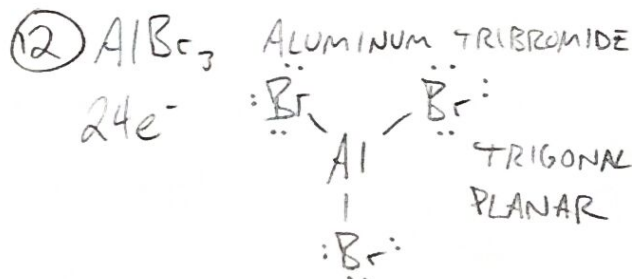 12 AlBr3 ALUMINUM TRIBROMIDE
24e-
:Br Br:
Al
TRIGONAL
PLANAR
:Br: